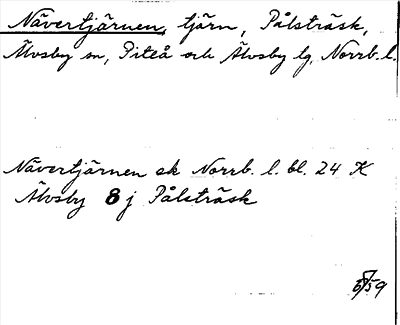 Nävertjärnen, tjärn, Pålsträsk,
Älvsby sn, Piteå och Älvsby tg, Norrb. l.
Nävertjärnen ek Norrb. l. bl. 24 K
Älvsby 8 j Pålsträsk